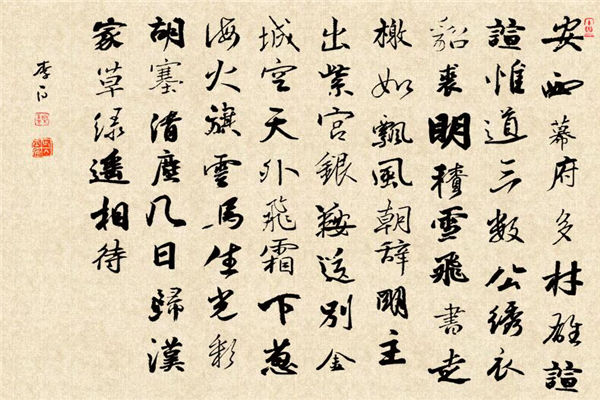 安西幕府多材雄諠
諠惟道三数公绣衣
貂裘明積雪飛書走
檄如飄風朝辞明主
出紫宫銀鞍送别金
城空天外飛霜下葱
海火旗雲馬生光彩
胡塞清塵几日歸漢
家草绿遥相待
李白